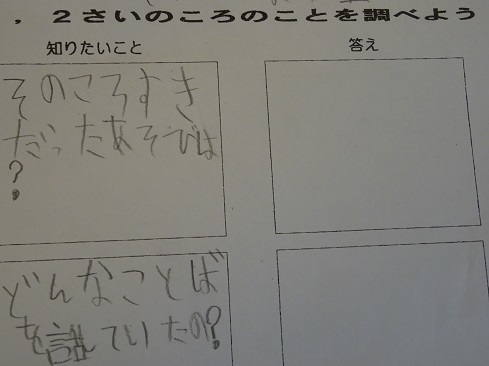 ．２さいのころのことを調べよう
知りたいこと
答え
そのころすき
だったあそびは
？
どんなことば
を話していたの？